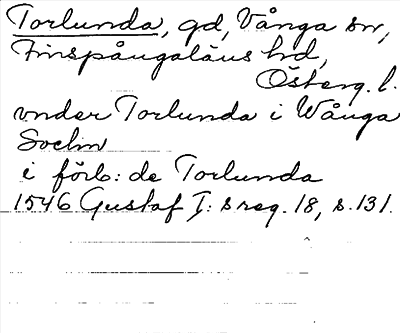 Torlunda, gd, Vånga sn,
Finspångaläns hd,
Österg. l.
vnder Torlunda i Wånga
Sochn
i förb: de Torlunda
1546 Gustaf I: s reg. 18, s. 131.